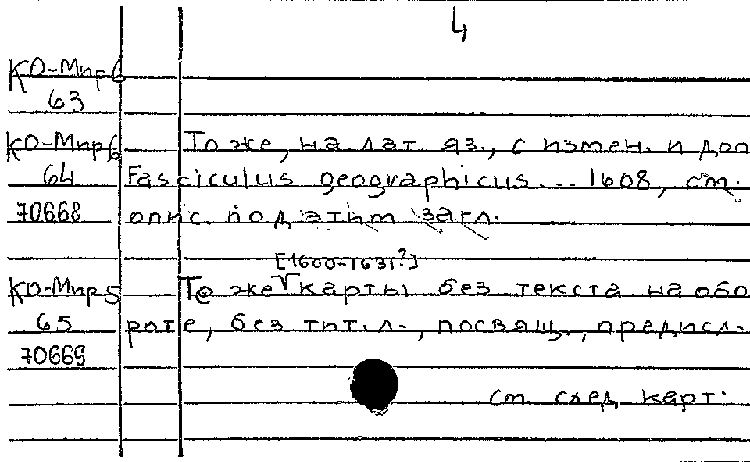 4
КО-Мир6
63
КО-Мир6 То же, на лат. яз., с измен. и доп
64 Fasciculus geographicus... 1608, см.
70668 опис. под этим загл.
[1600-1631?]
КО-Мир5 То же √ карты без текста на обо
65 роте, без тит. л., посвящ., предисл.
70669
см. след. карт.